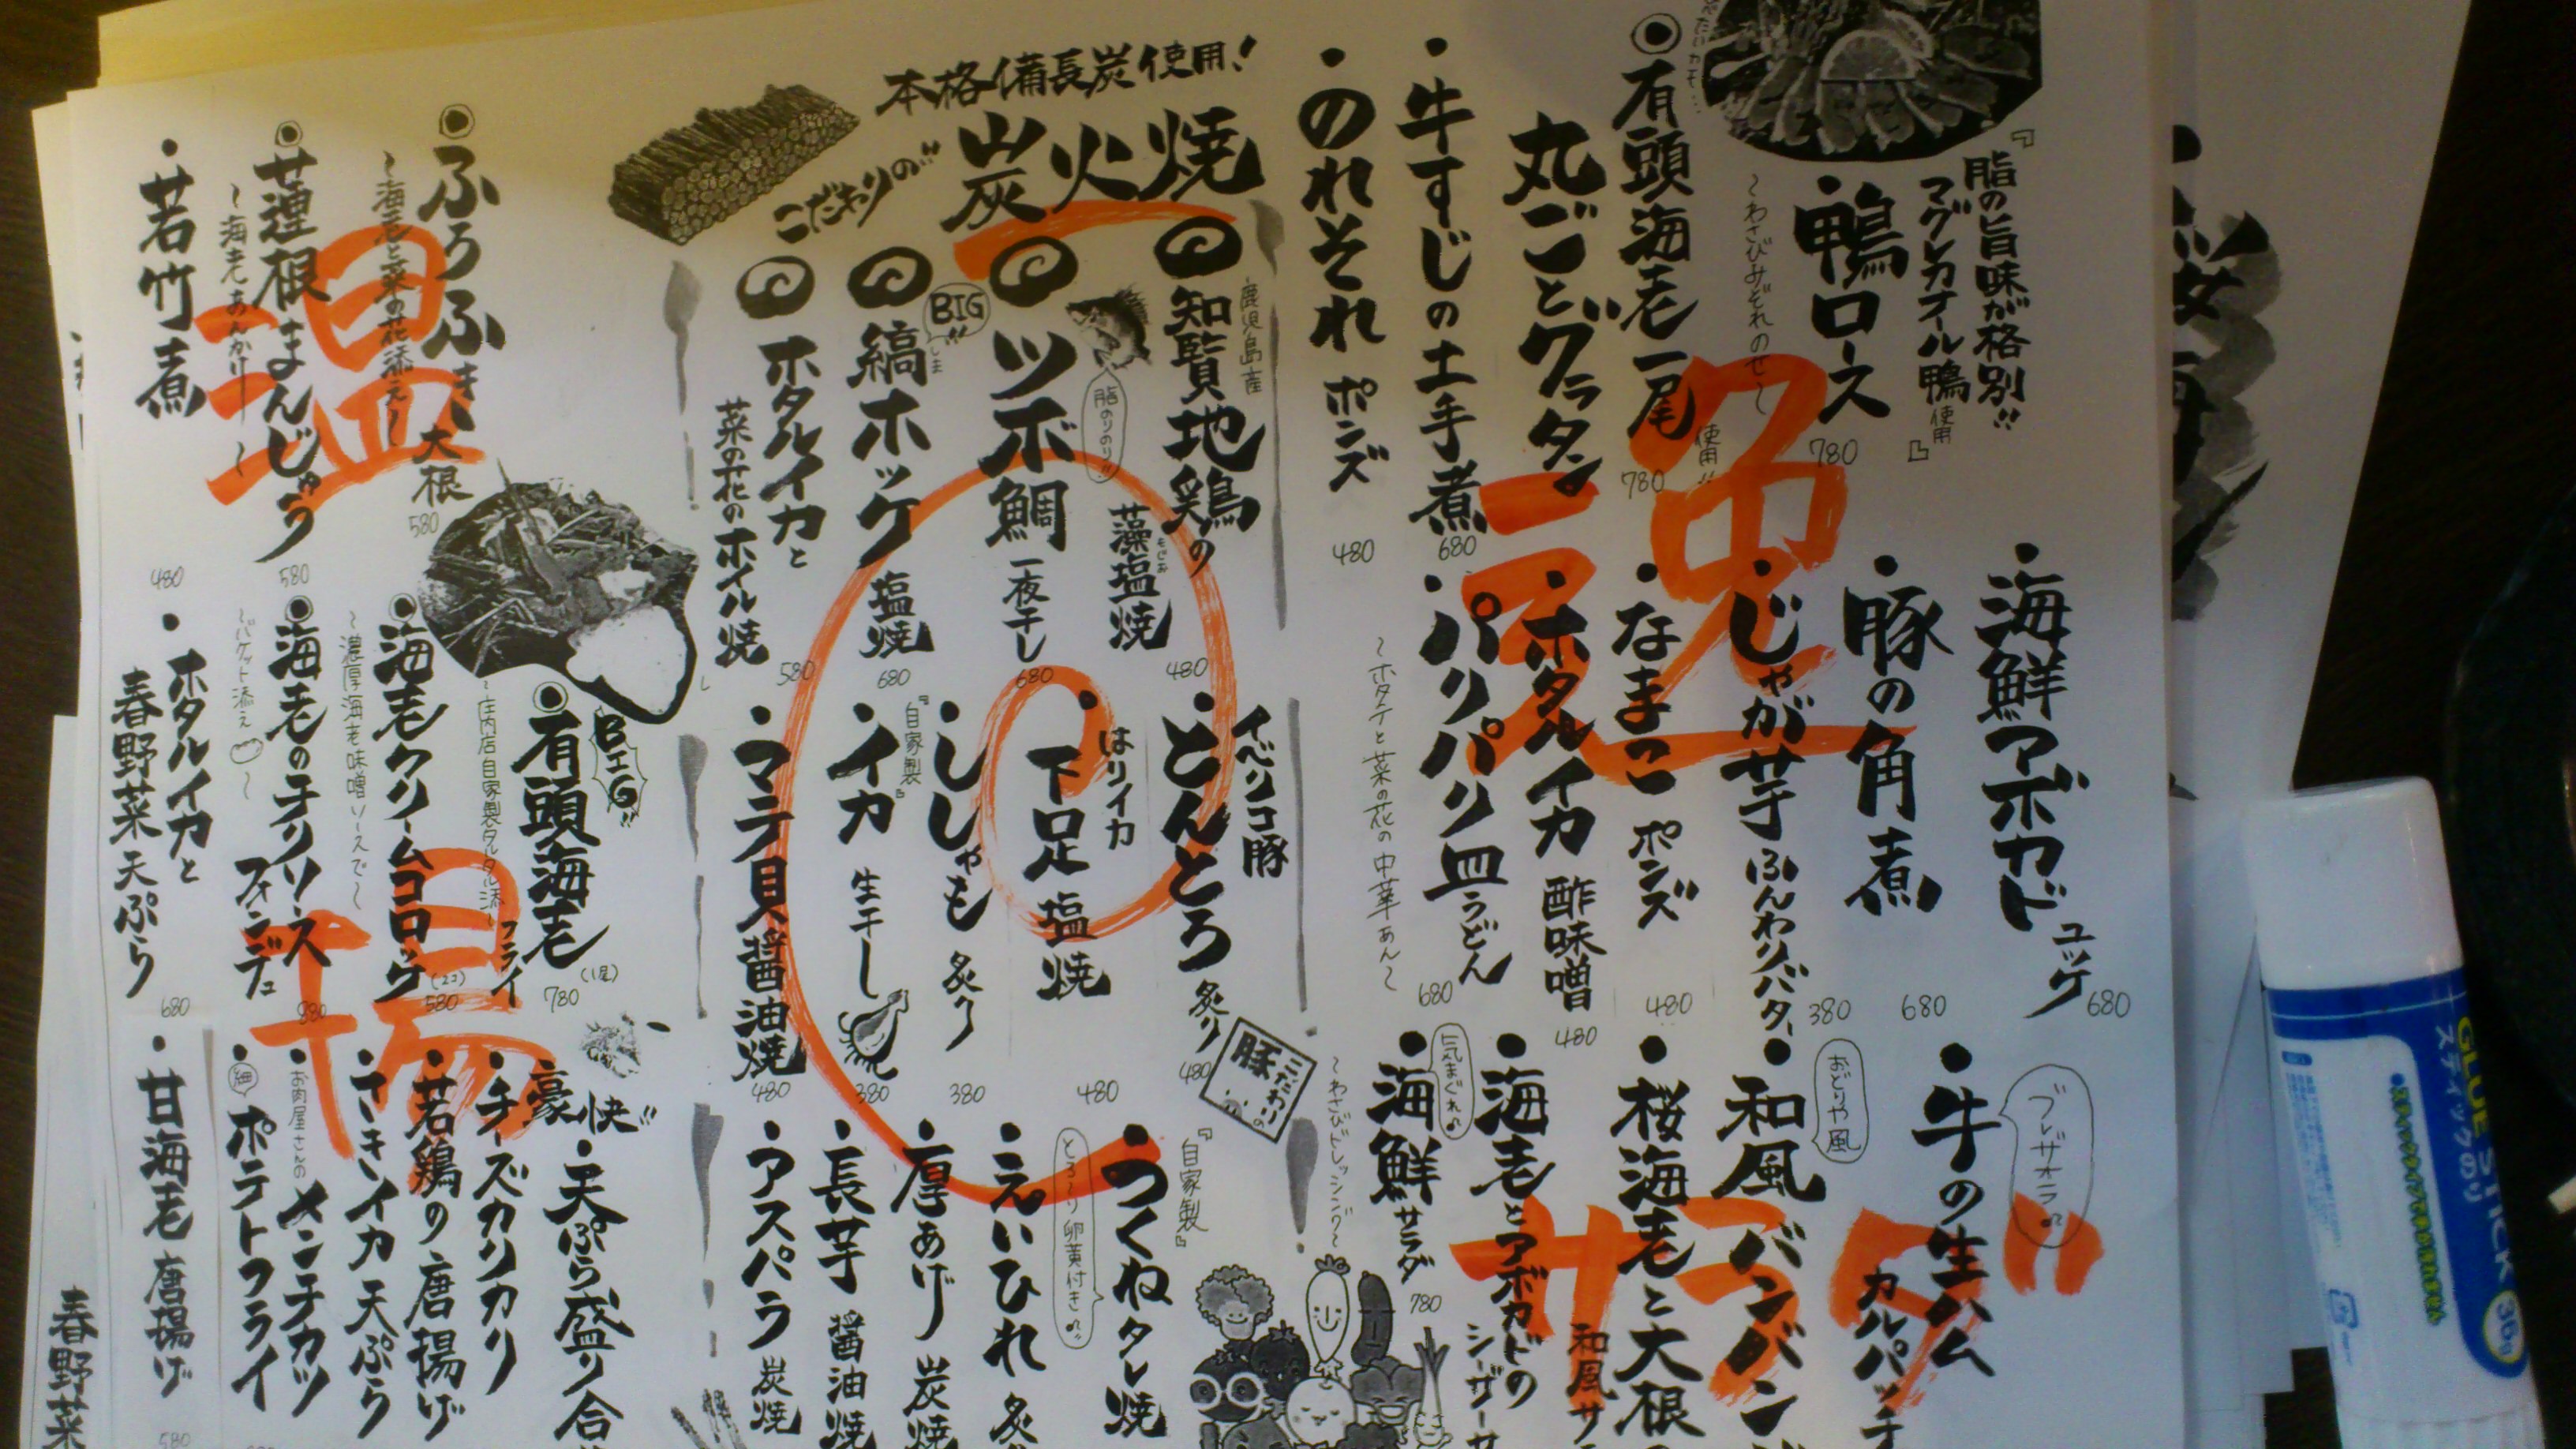 『脂の旨味が格別!!
マグレカナール鴨使用』
鴨ロース
〜わさびみぞれのせ〜
780
有頭海老一尾
使用!!
丸ごとグラタン
780
牛すじの土手煮
680
のれそれ ポンズ
480
海鮮アボカド
ユッケ
680
豚の角煮
680
じゃが芋ふんわりバター
380
なまこ ポンズ
480
ホタルイカ 酢味噌
480
パリパリ皿うどん
〜ホタテと菜の花の中華あん〜
680
逸
ブレザオラ♪
牛の生ハム
カルパッチ
おどりや風
和風バンバン
桜海老と大根
和風サ
海老とアボカドの
シーザーサ
気まぐれ♪
海鮮サラダ
〜わさびドレッシング〜
780
サラダ
本格備長炭使用!
こだわりの
炭火焼
鹿児島産
知覧地鶏の
藻塩焼
もじお
480
脂のりのり!!
ツボ鯛 一夜干し
680
BIG!!
縞ホッケ 塩焼
しま
680
ホタルイカと
菜の花のホイル焼
580
イベリコ豚
とんとろ 炙り
480
こだわりの
豚
はりイカ
下足 塩焼
480
ししゃも 炙り
380
『自家製』
イカ 生干し
380
マテ貝醤油焼
480
『自家製』
つくねタレ焼
とろ〜り卵黄付き♪
えいひれ 炙
厚あげ 炭焼
長芋 醤油焼
アスパラ 炭焼
ふろふき大根
〜海老と菜の花添え〜
580
蓮根まんじゅう
〜海老あんかけ〜
580
若竹煮
480
温
BIG!!
有頭海老
フライ
(1尾)
780
〜庄内店自家製タルタル添〜
海老クリームコロッケ
(2コ)
580
〜濃厚海老味噌ソースで〜
海老のチリソース
フォンデュ
〜バケット添え〜
ホタルイカと
春野菜 天ぷら
680
揚
豪快!!
天ぷら盛り合
チーズカリカリ
若鶏の唐揚げ
さきイカ天ぷら
お肉屋さんの
メンチカツ
細
ポテトフライ
甘海老 唐揚げ
580
春野菜
GLUE STICK
スティックのり